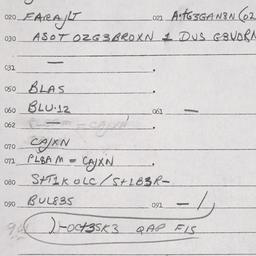 020 FARAJLT 021
030 ASOT OZG3BROXN 1 DUS G3VDRN
031 —
050 BLAS
060 BLU.12 061 —
062
070 CAJXN
071 PLBAM = CAJXN
080 S+T1K OLC / S+1B3R-
090 BUL83S 091 —
)-OCT3SK3 QAP F1S